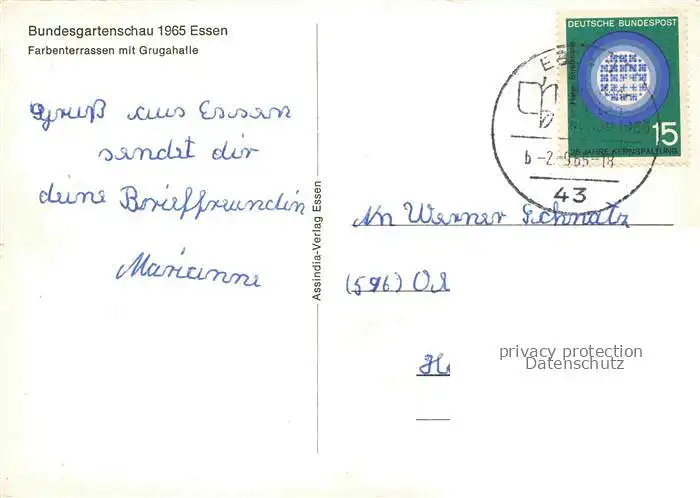 Bundesgartenschau 1965 Essen
Farbenterrassen mit Grugahalle
Gruß aus Essen
sendet dir
deine Brieffreundin
Marianne
Assindia-Verlag Essen
DEUTSCHE BUNDESPOST
15
25 JAHRE KERNSPALTUNG
43
An Werner Schmatz
(596) Ol
privacy protection
Datenschutz